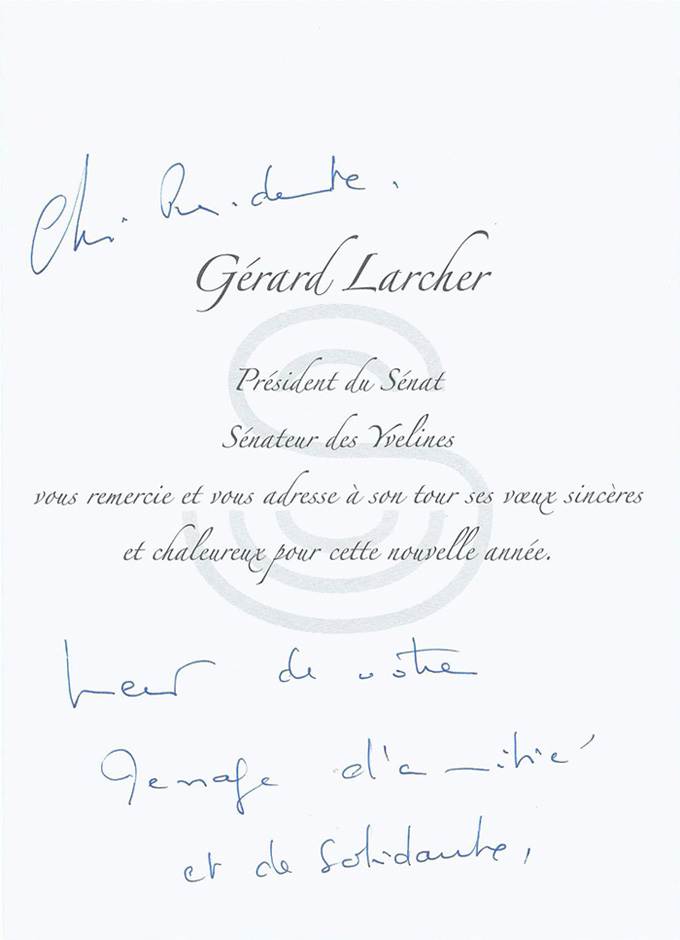 Chère Présidente.
Gérard Larcher
Président du Sénat
Sénateur des Yvelines
vous remercie et vous adresse à son tour ses vœux sincères
et chaleureux pour cette nouvelle année.
Merci de votre
Message d'amitié
et de Solidarité,